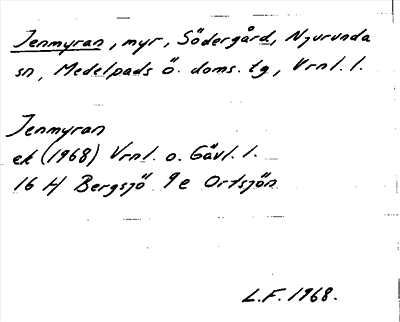 Jenmyran, myr, Södergård, Njurunda
sn, Medelpads ö. doms. tg, Vrnl. l.
Jenmyran
ek (1968) Vrnl. o. Gävl. l.
16 H Bergsjö 9e Ortsjön
L.F. 1968.